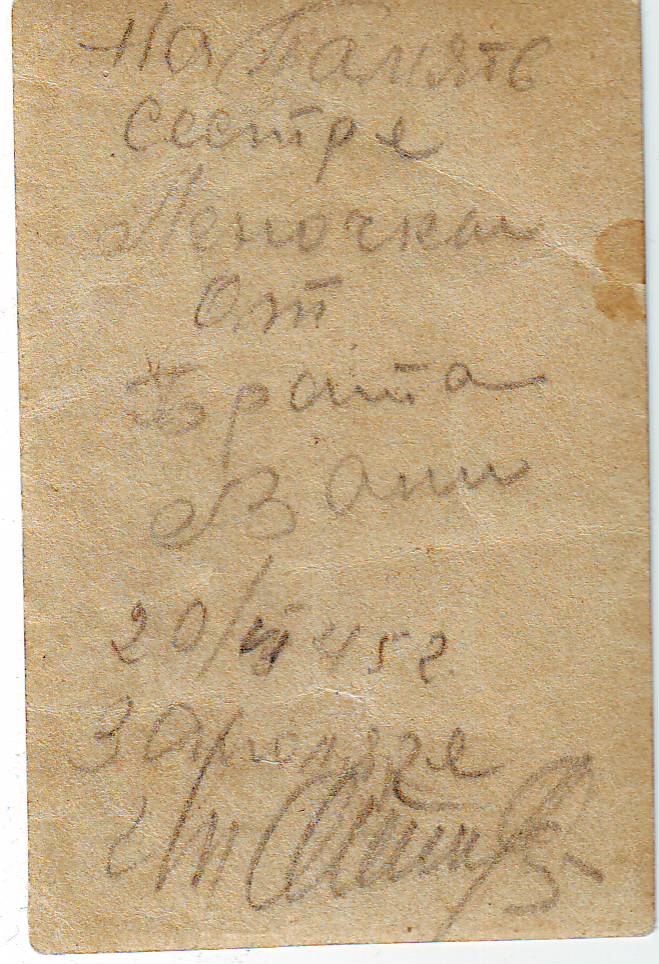 На Память
сестре
Леночки
от
Брата
Вани
20/VI 45г.